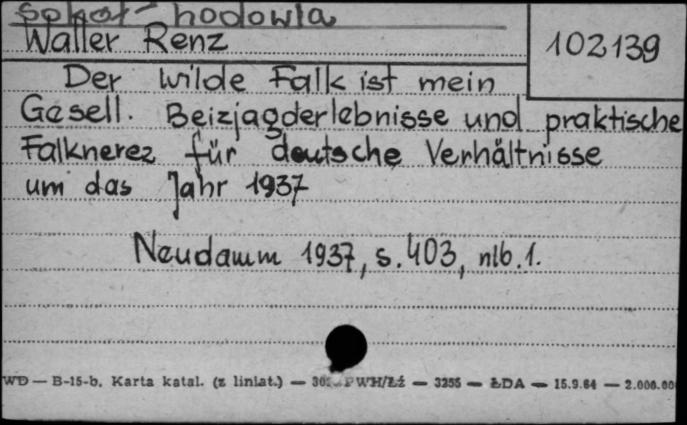 sokół - hodowla
Waller Renz
102139
Der wilde Falk ist mein
Gesell. Beizjagderlebnisse und praktische
Falknerez für deutsche Verhältnisse
um das Jahr 1937
Neudamm 1937, s. 403, nlb. 1.
WD — B-15-b. Karta katal. (z liniat.) — PWH/Łź — 3255 — ŁDA — 15.9.64 — 2.000.00